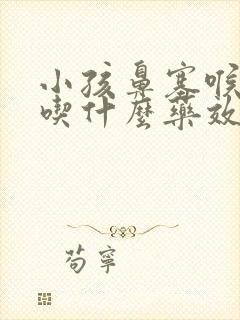 小孩鼻塞喉
喫什麼藥效
苟寧